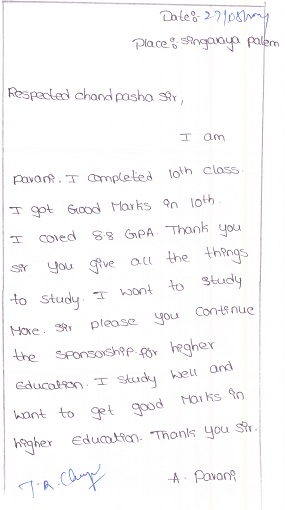 Date: 27/05/
Place: Singaraya palem
Respected chandpasha sir,
I am
pavani. I completed 10th class.
I got Good Marks in 10th.
I cored 88 GPA. Thank you
sir you give all the things
to study. I want to study
More. sir please you continue
the sponsorship for higher
Education. I study well and
want to get good Marks in
higher Education. Thank you sir.
A. Pavani